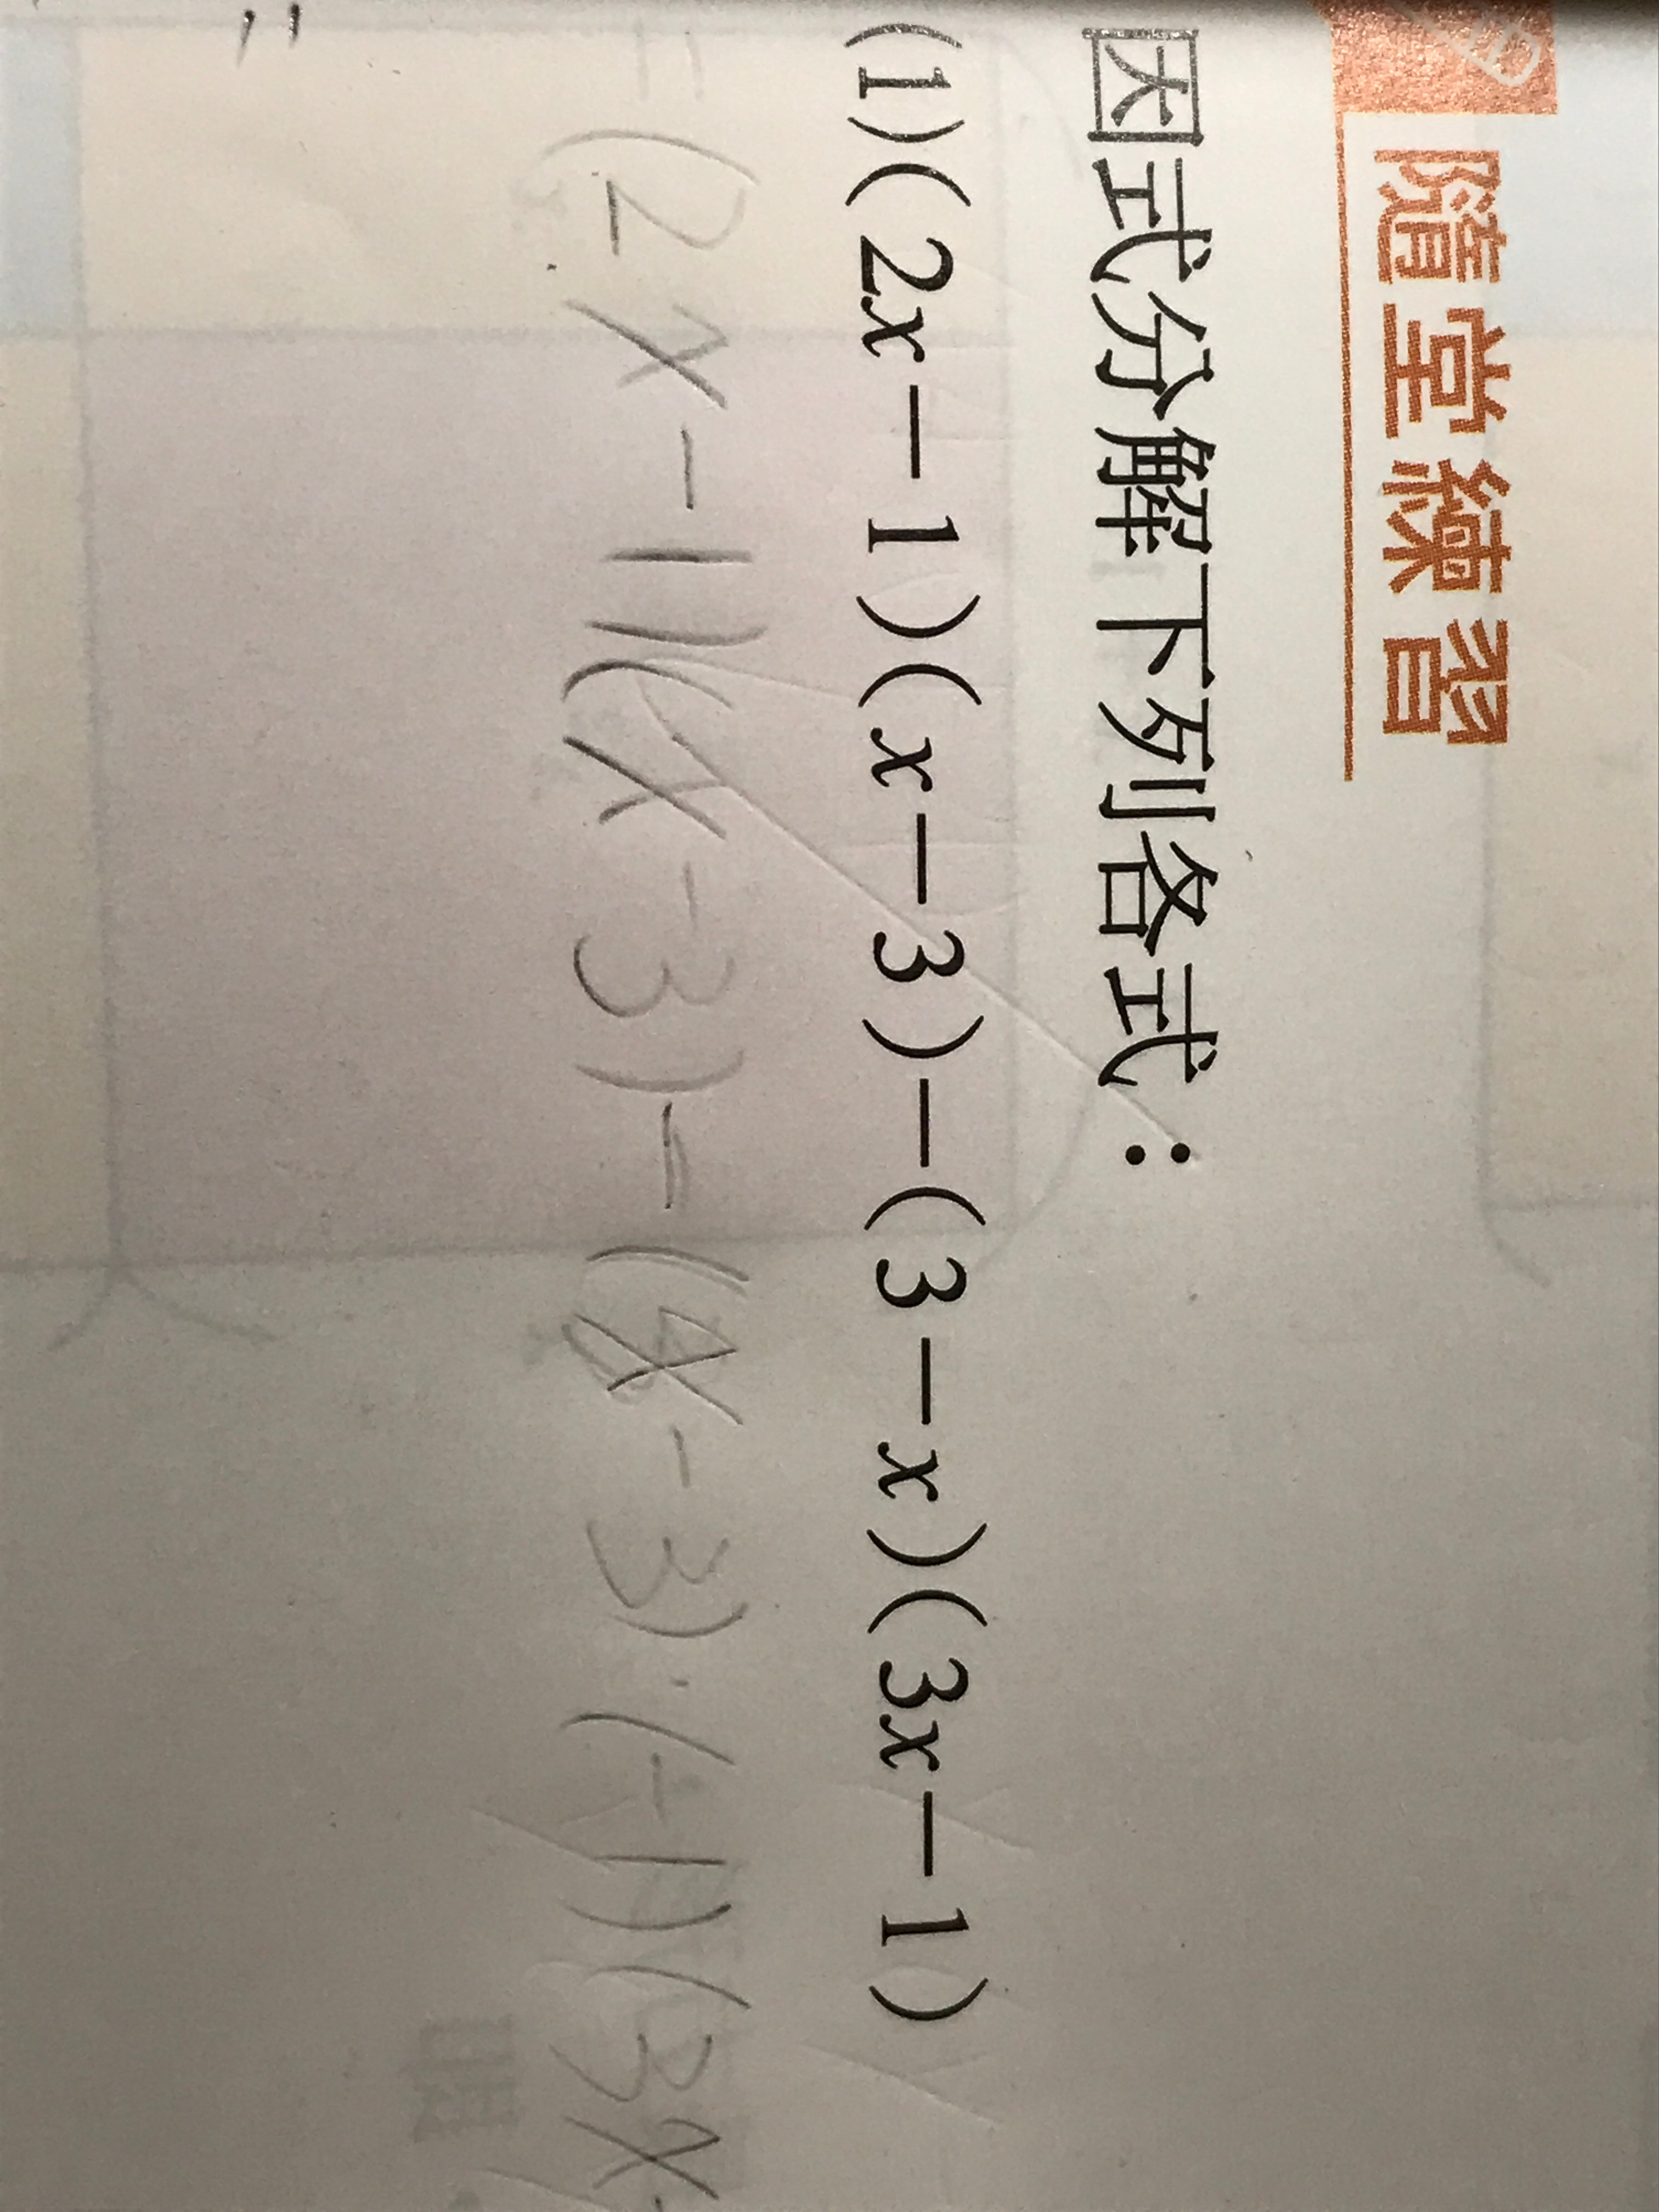 隨堂練習
因式分解下列各式：
(1)(2x－1)(x－3)－(3－x)(3x－1)
=(2x-1)(x-3)-(x-3)·(-1)(3x
=